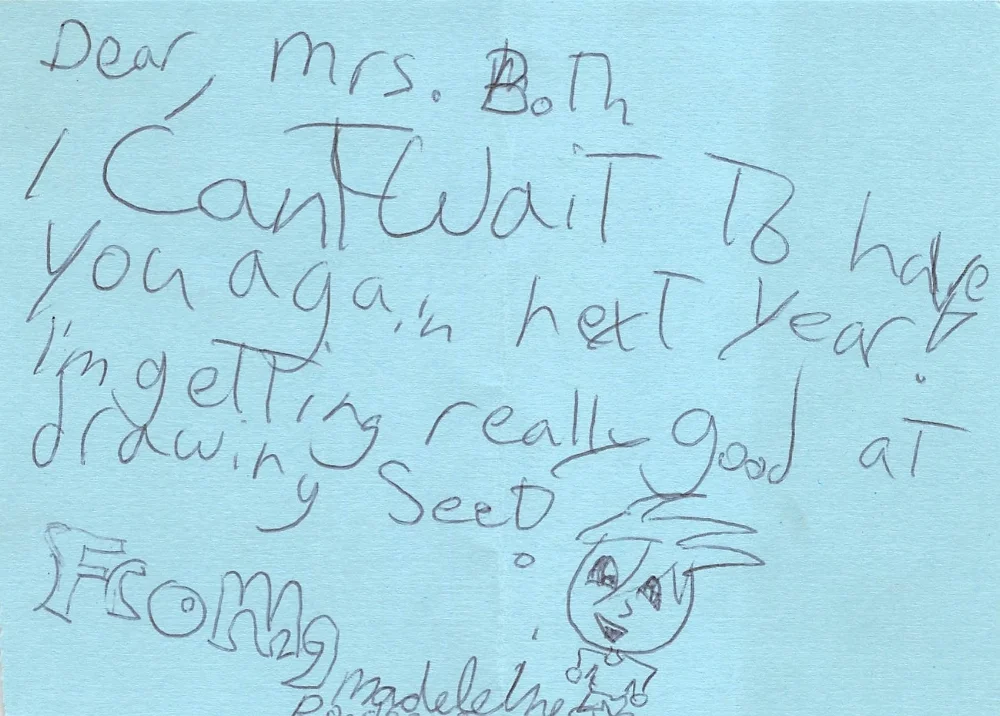 Dear, Mrs. Both
I Can't Wait To have
you again next year!
I'm getting really good at
drawing See!
From,
madeleine